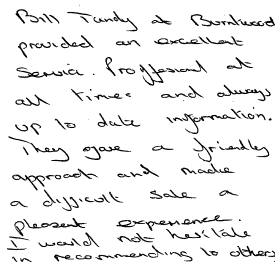 Bill Tandy at Burntwood
provided an excellent
Service. Proffesional at
all times and always
up to date information.
They gave a friendly
approach and made
a difficult sale a
pleasent experience.
I would not hesitate
in recommending to others